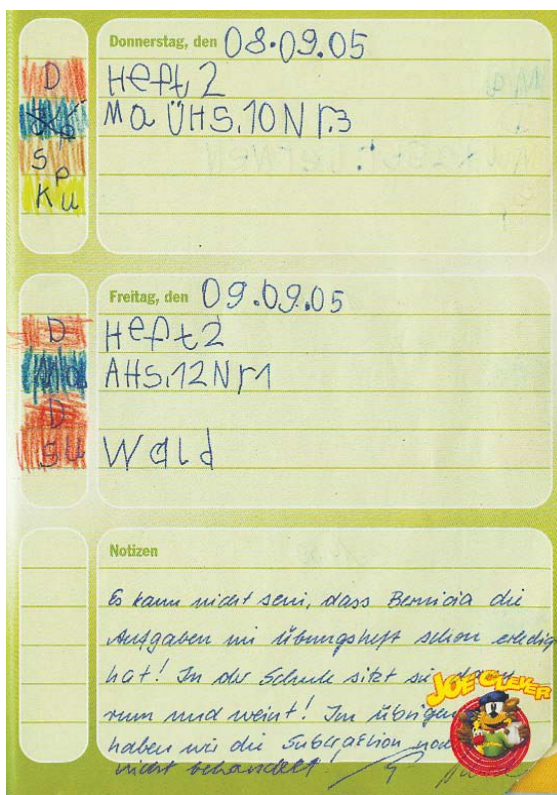 Donnerstag, den 08.09.05
D Heft 2
Ma ÜHS.10 Nr.3
Sp
Ku
Freitag, den 09.09.05
D Heft 2
Ma AHS.12 Nr 1
D
SU Wald
Notizen
Es kann nicht sein, dass Bernicia die
Aufgaben im Übungsheft schon erledig
hat! In der Schule sitzt sie
rum und weint! Im übrigen
haben wir die Subtraktion noch
nicht behandelt!
JOE CLEVER